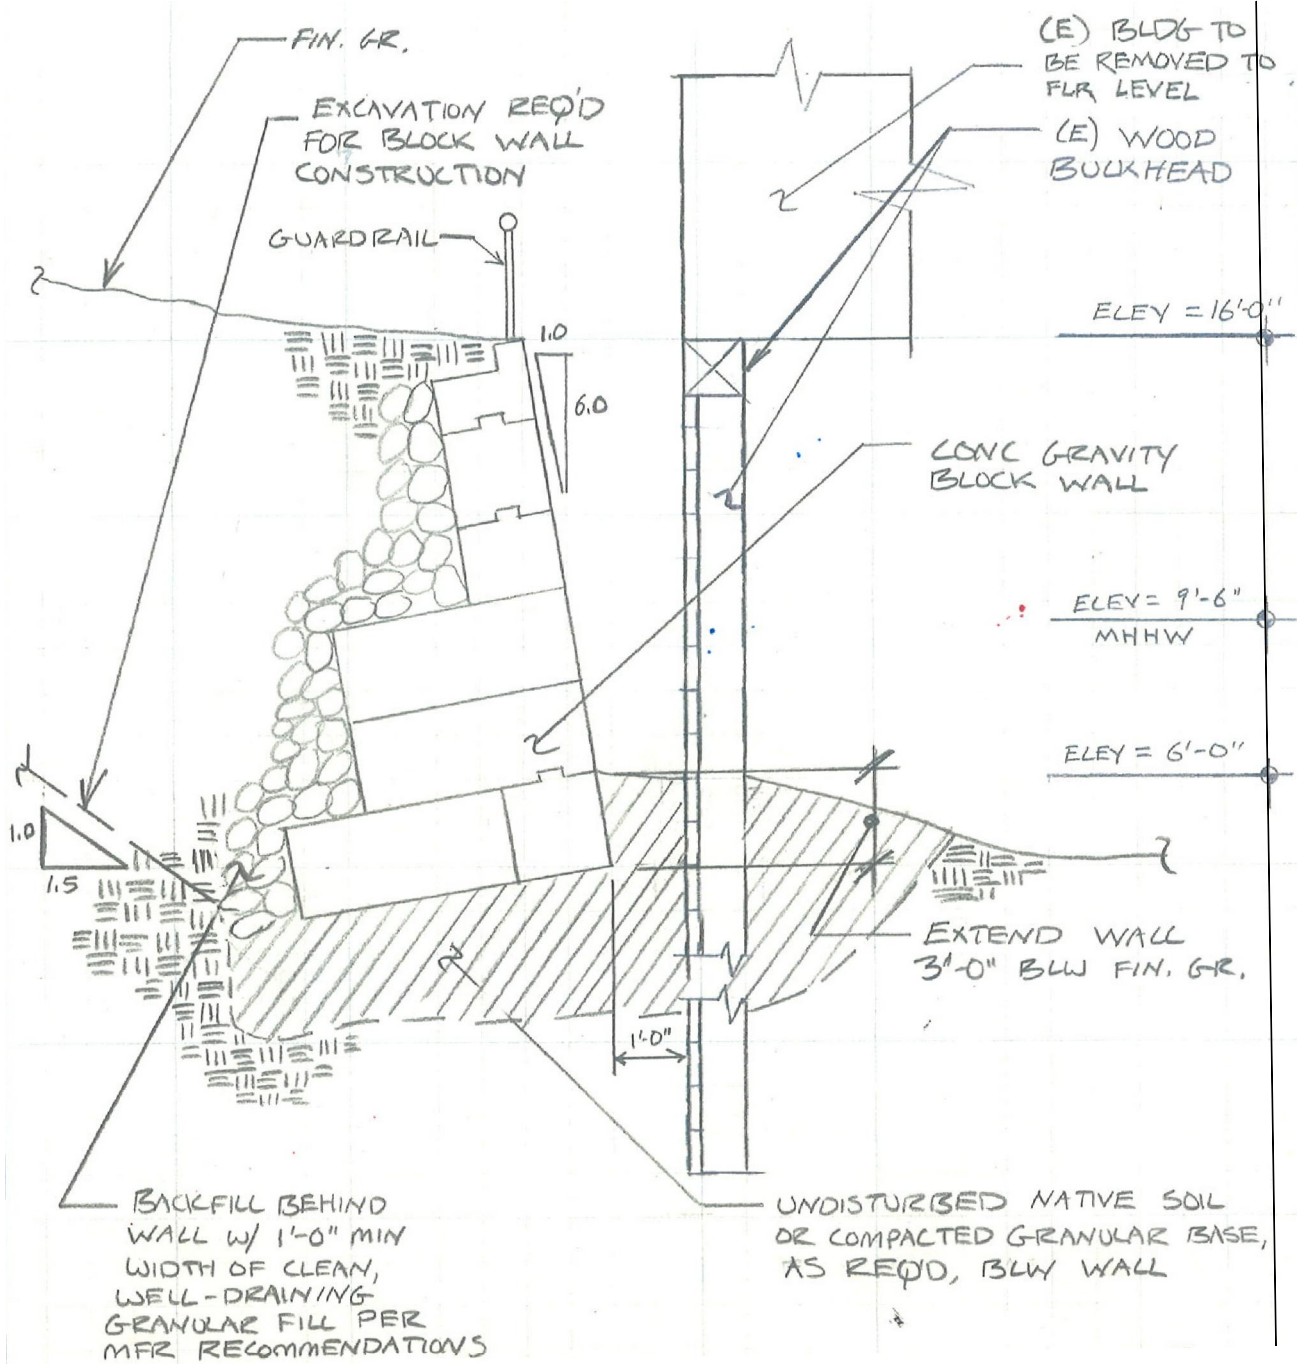 FIN. GR.
EXCAVATION REQ'D
FOR BLOCK WALL
CONSTRUCTION
GUARDRAIL
(E) BLDG TO
BE REMOVED TO
FLR LEVEL
(E) WOOD
BULKHEAD
ELEV = 16'-0"
1.0
6.0
CONC GRAVITY
BLOCK WALL
ELEV = 9'-6"
MHHW
ELEV = 6'-0"
1.0
1.5
EXTEND WALL
3'-0" BLW FIN. GR.
1'-0"
BACKFILL BEHIND
WALL W/ 1'-0" MIN
WIDTH OF CLEAN,
WELL-DRAINING
GRANULAR FILL PER
MFR RECOMMENDATIONS
UNDISTURBED NATIVE SOIL
OR COMPACTED GRANULAR BASE,
AS REQ'D, BLW WALL